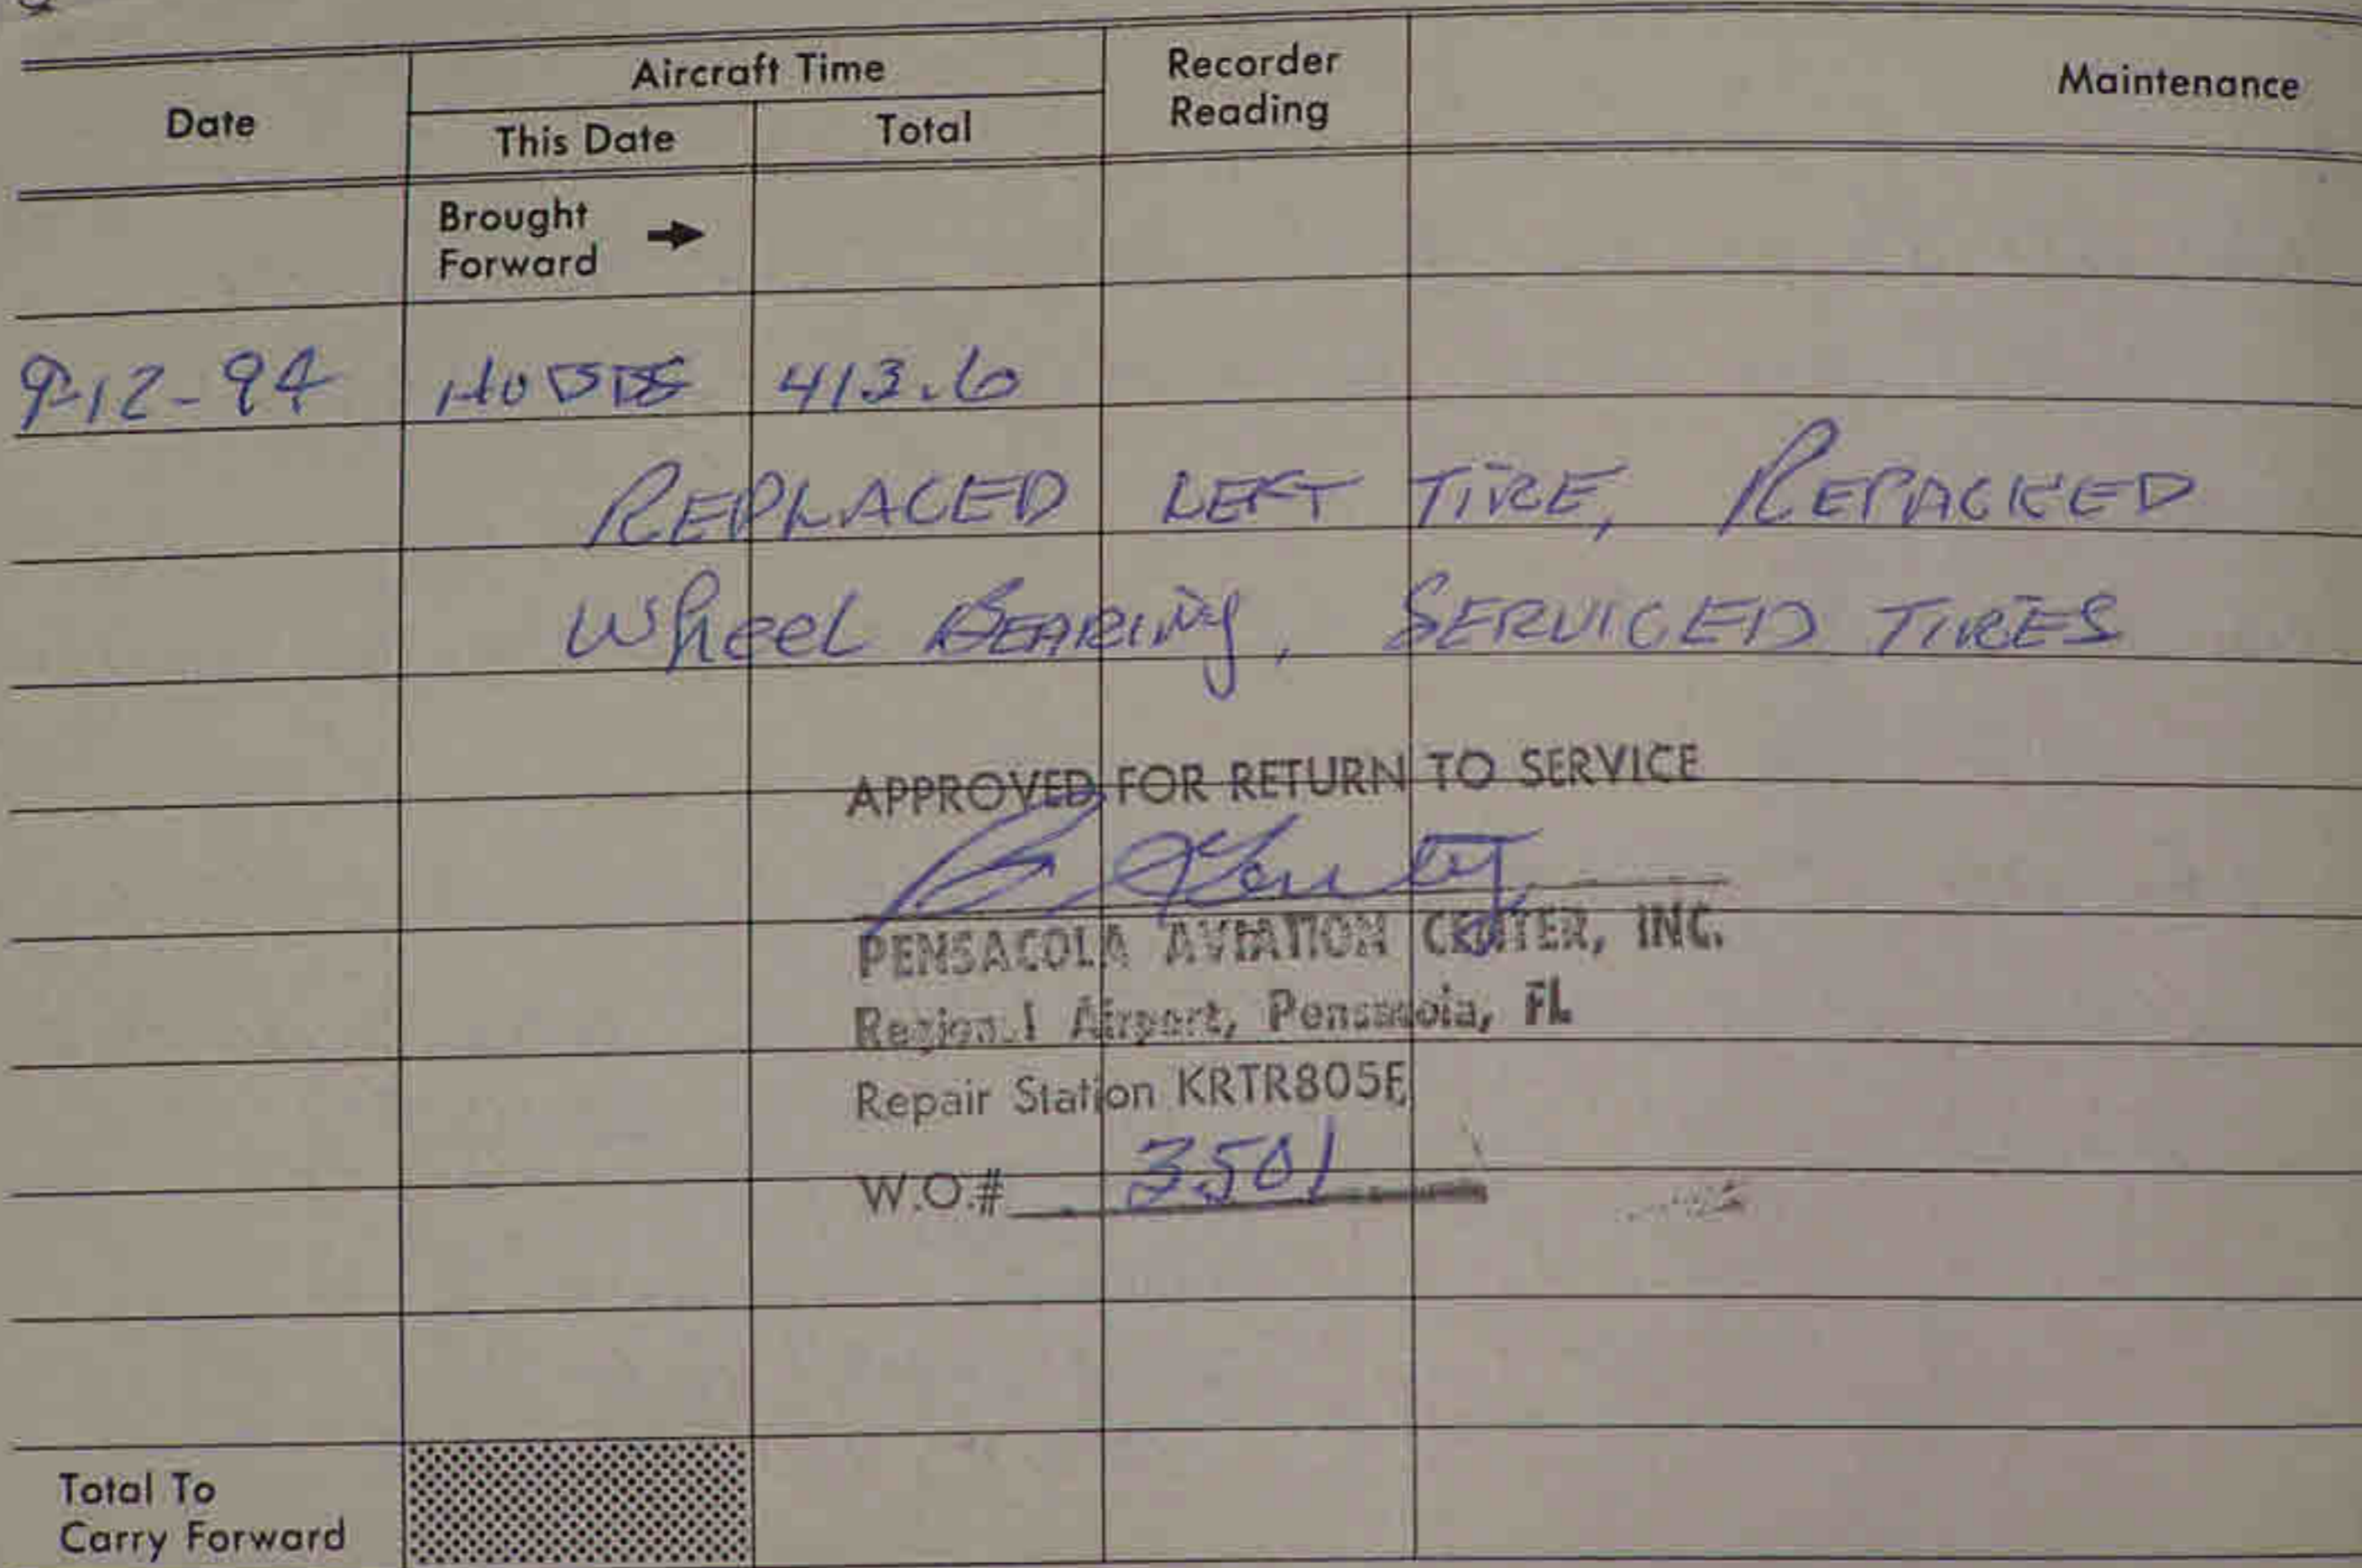 Date
Aircraft Time
This Date
Total
Recorder
Reading
Maintenance
Brought
Forward
9-12-94 HOBBS 413.6
REPLACED LEFT TIRE, REPACKED
Wheel BEARINg, SERVICED TIRES
APPROVED FOR RETURN TO SERVICE
PENSACOLA AVIATION CENTER, INC.
Regional Airport, Pensacola, FL
Repair Station KRTR805E
W.O.# 3501
Total To
Carry Forward